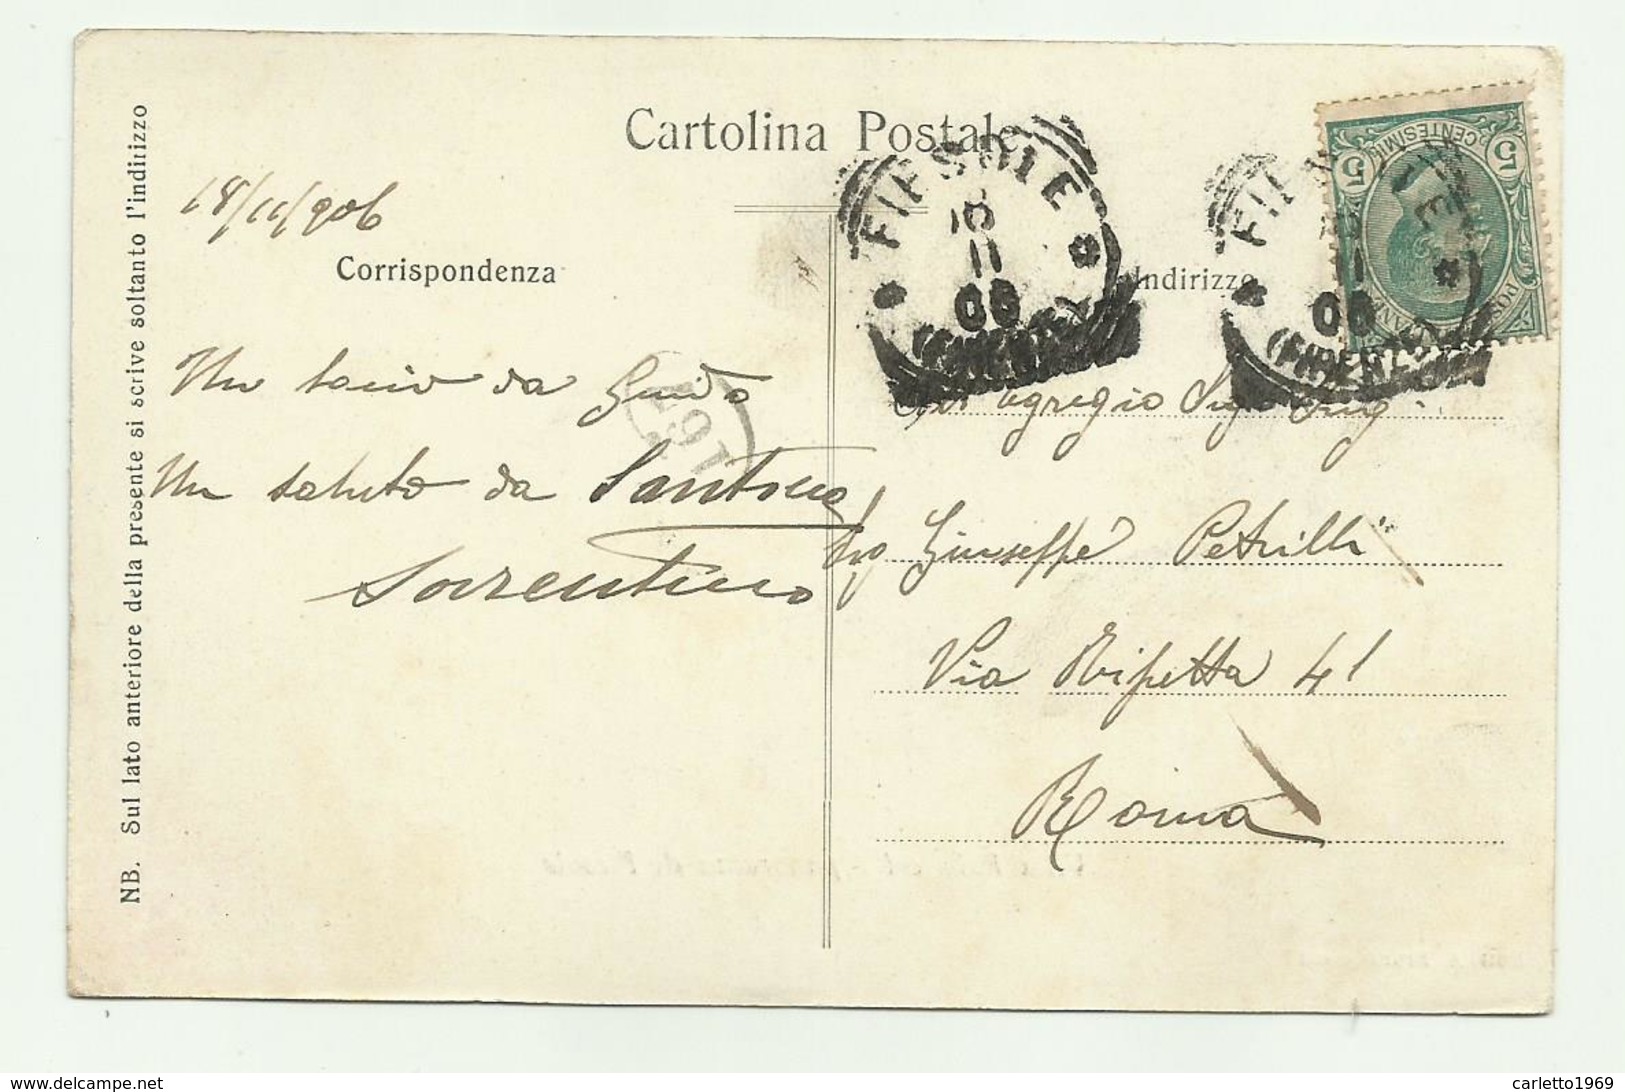 Cartolina Postale
18/11/906
Corrispondenza
Indirizzo
NB. Sul lato anteriore della presente si scrive soltanto l'indirizzo
FIESOLE
18
11
06
(FIRENZE)
FIESOLE
11
06
(FIRENZE)
5 CENTESIMI 5
Un bacio da Guido
Un saluto da
Sorrentino
167
egregio Sig.
Giuseppe Petrilli
Via Ripetta 41
Roma
www.delcampe.net
carletto1969